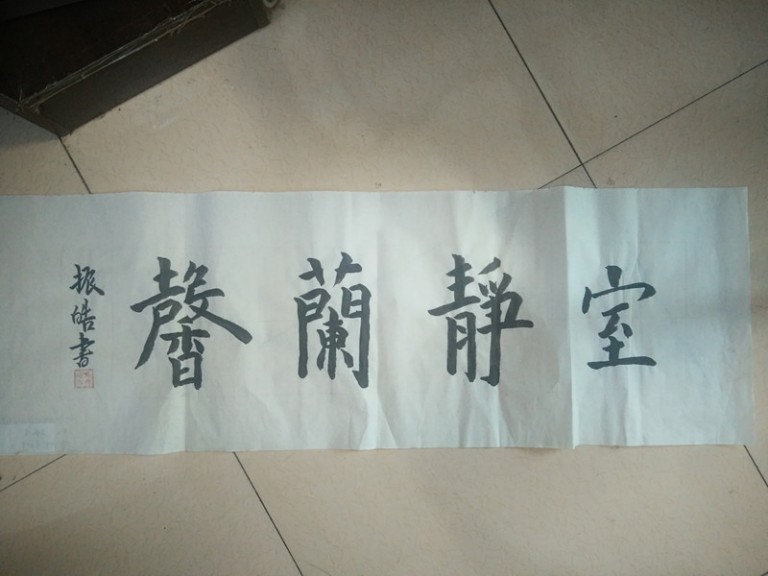 室靜蘭馨
振皓書